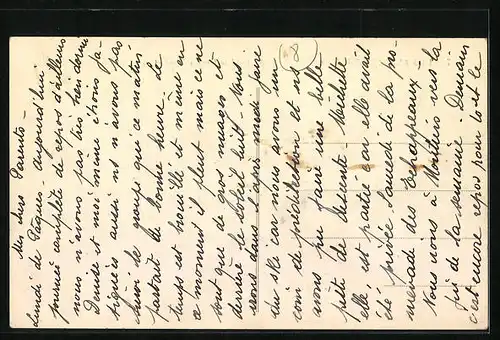 2
Mes chers Parents –
Lundi de Pâques – aujourd'hui
journée complète de repos d'ailleurs
nous n'avons pas très bien dormi
Denise et moi même étions fa-
tigués aussi ns n'avons pas
suivi le groupe qui ce matin
partait de bonne heure. Le
temps est brouillé et même en
ce moment il pleut mais ce ne
sont que de gros nuages et
derrière le soleil luit. Nous
irons dans l'après midi faire
du ski car nous avons un
coin de prédilection et ns
avons pu faire une belle
piste de descente. Michette
elle, est partie car elle avait
été privée samedi de la pro-
menade des
Nous irons à Moutiers vers la
fin de la semaine – Demain
c'est encore repos pour et le